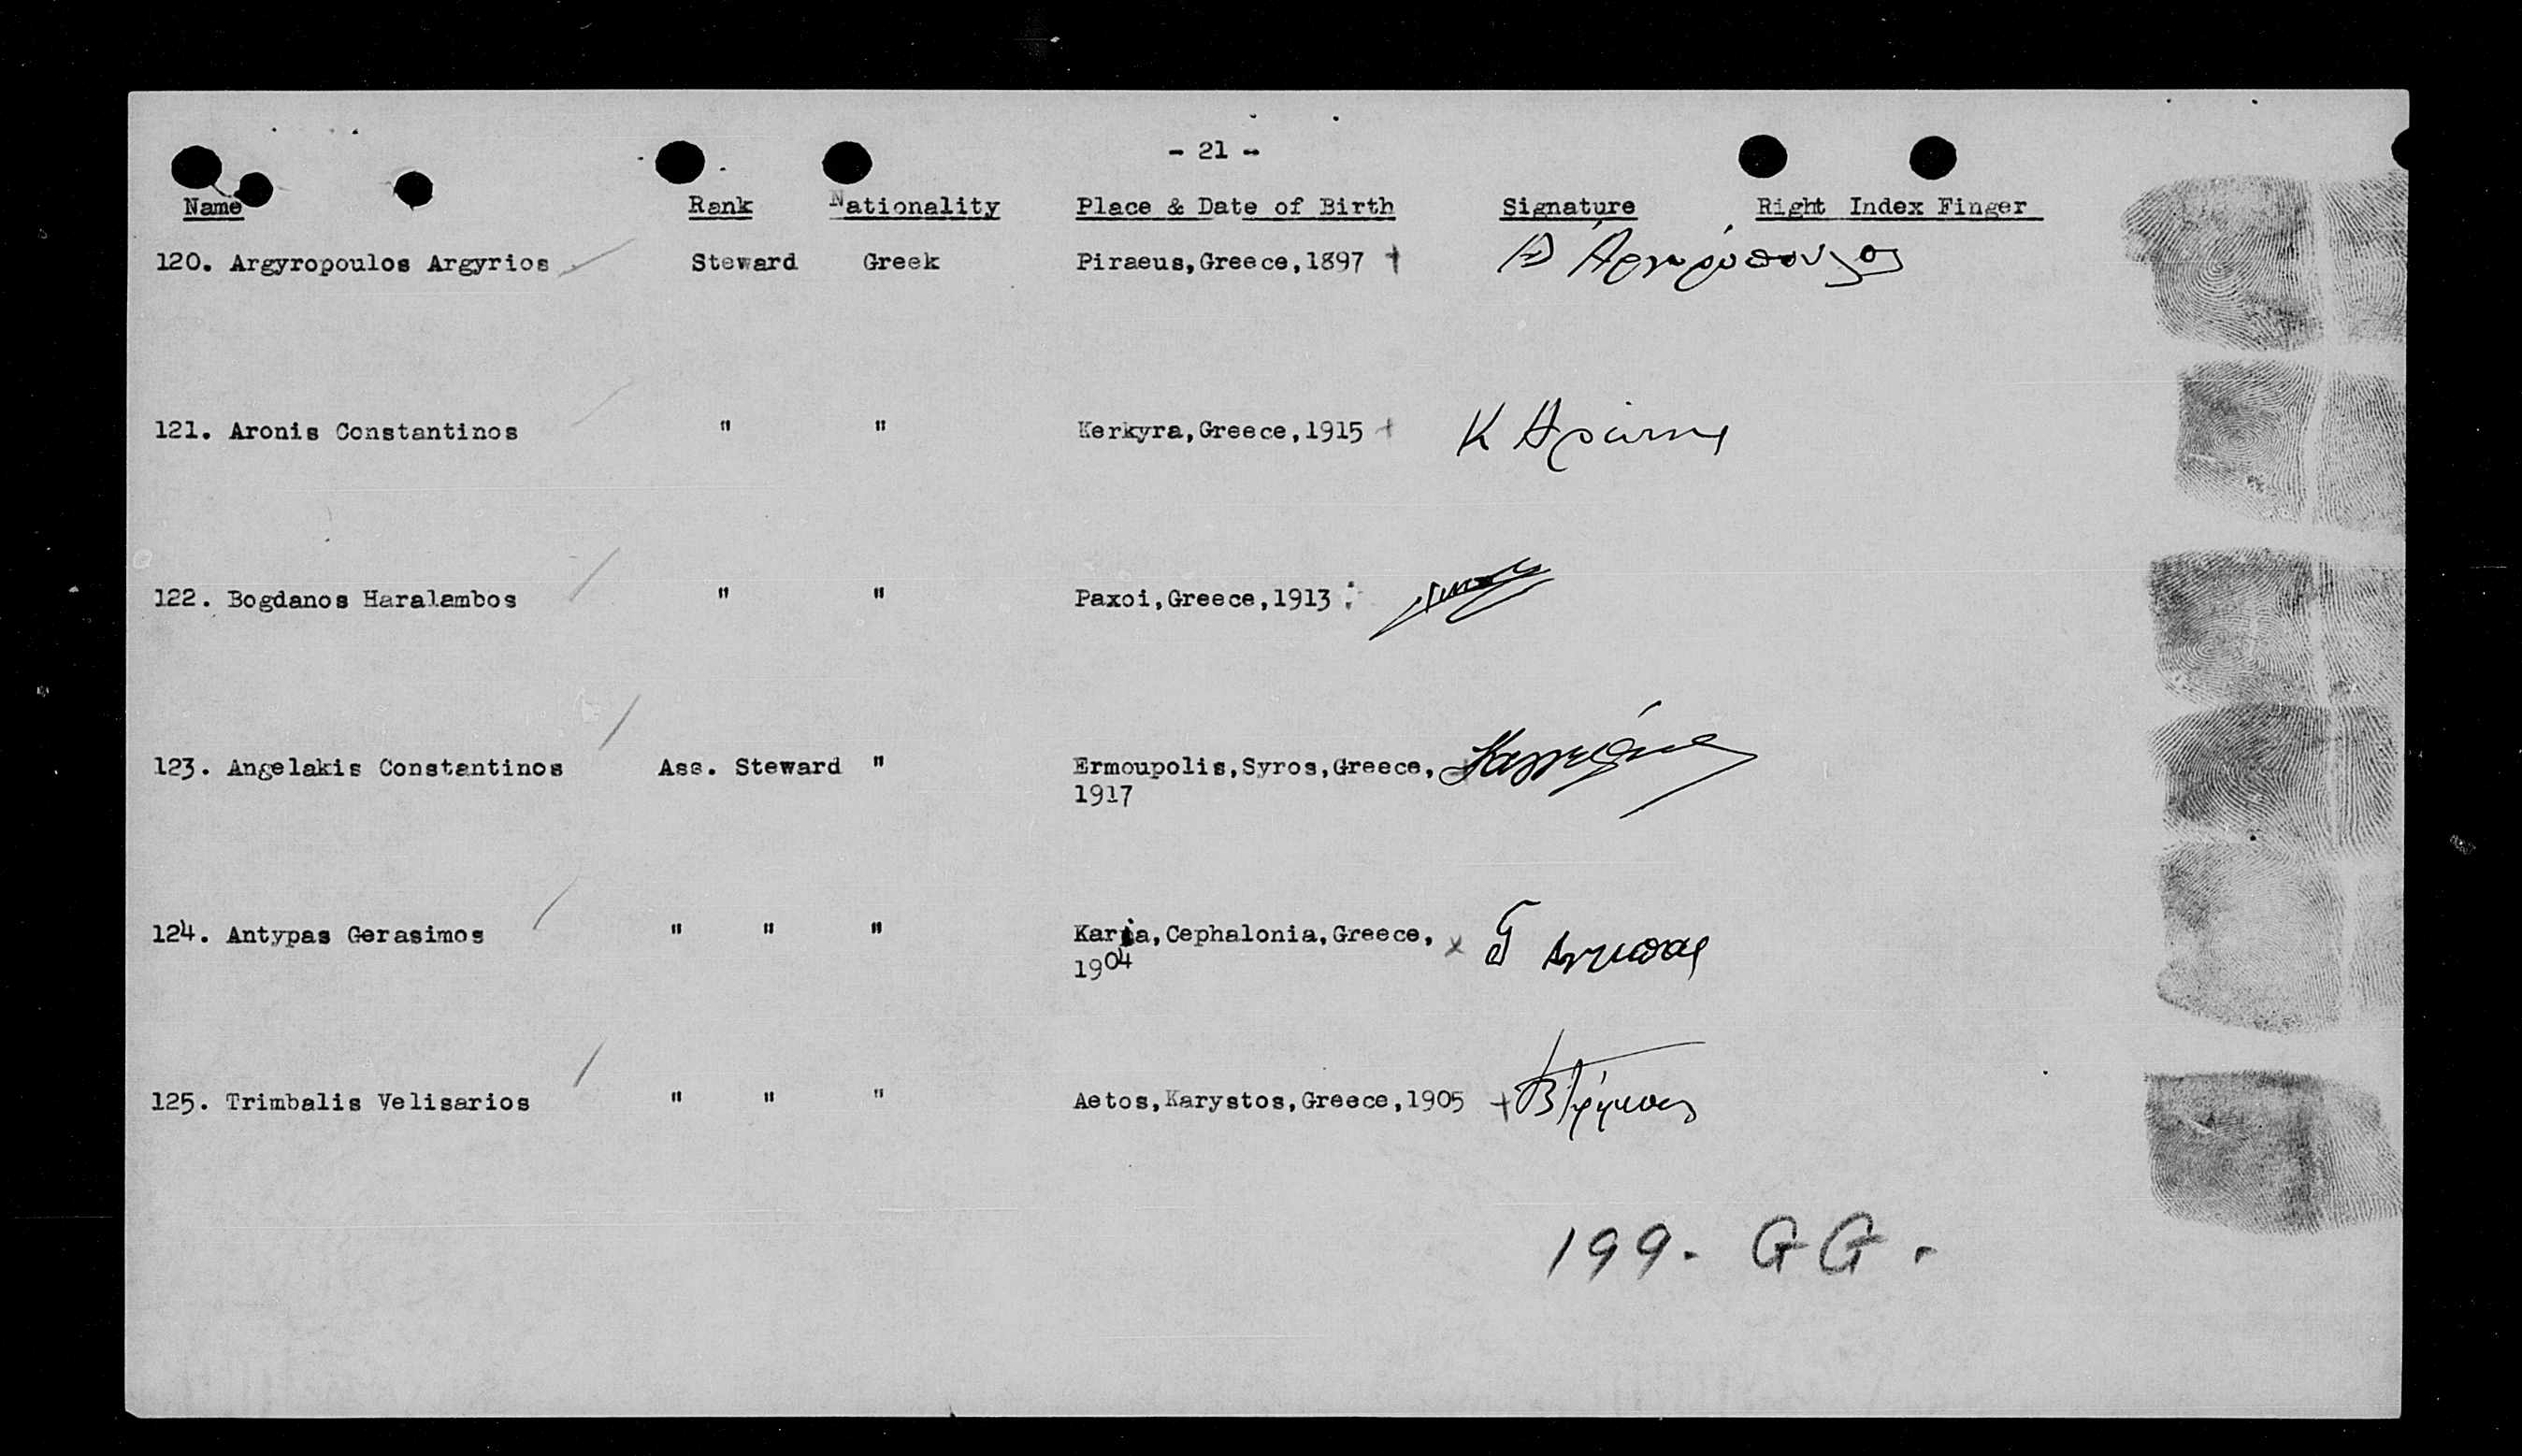 - 21 -
Name Rank Nationality Place & Date of Birth Signature Right Index Finger
120. Argyropoulos Argyrios Steward Greek Piraeus,Greece,1897 Α Ἀργυρόπουλος
121. Aronis Constantinos " " Kerkyra,Greece,1915 Κ Αρώνης
122. Bogdanos Haralambos " " Paxoi,Greece,1913
123. Angelakis Constantinos Ass. Steward " Ermoupolis,Syros,Greece,
1917
124. Antypas Gerasimos " " " Karia,Cephalonia,Greece, Γ Αντυπας
1904
125. Trimbalis Velisarios " " " Aetos,Karystos,Greece,1905
199. GG.